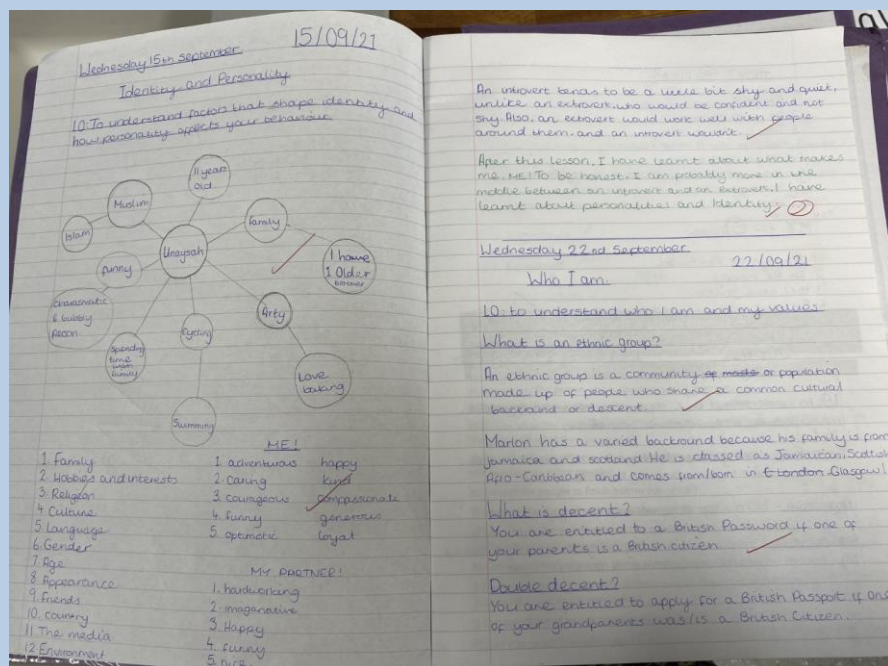 Wednesday 15th September
15/09/21
Identity and Personality
LO: To understand factors that shape identity and
how personality affects your behaviour
11 years
old
Muslim
Islam
Family
Unaysah
funny
I have
1 Older
brother
charasmatic
& bubbly
Arty
Cycling
Spending
time
with
family
Love
baking
Swimming
ME!
1 Family
2 Hobbies and interests
3 Religion
4 Culture
5 Language
6 Gender
7 Age
8 Appearance
9 Friends
10. Country
11 The media
12 Environment
1 adventurous
2 caring
3 courageous
4. funny
5 optimatic
happy
kind
compassionate
generous
loyal
MY PARTNER!
1. hardworking
2. imaganative
3. Happy
4. funny
5. nice
An introvert tends to be a little bit shy and quiet,
unlike an extrovert, who would be confident and not
shy. Also, an extrovert would work well with people
around them. and an introvert wouldn't.
After this lesson, I have learnt about what makes
me, ME! To be honest, I am probably more in the
middle between an introvert and an extrovert. I have
learnt about personalities and Identity.
2
Wednesday 22nd September
22/09/21
Who I am.
LO: to understand who I am and my values
What is an ethnic group?
An ethnic group is a community of made or population
made up of people who share a common cultural
backround or descent.
Marlon has a varied backround because his family is from
Jamaica and scotland. He is classed as Jamaican, Scottish
Afro-Caribbean and comes from/born in London Glasgow!
What is decent?
You are entitled to a British Password if one of
your parents is a British citizen
Double decent?
You are entitled to apply for a British Passport if one
of your grandparents was/is a British Citizen.